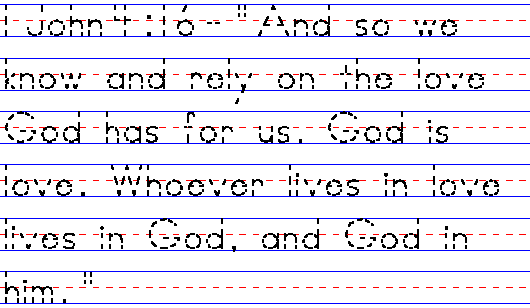 1 John 4:16-"And so we
know and rely on the love
God has for us. God is
love. Whoever lives in love
lives in God, and God in
him."